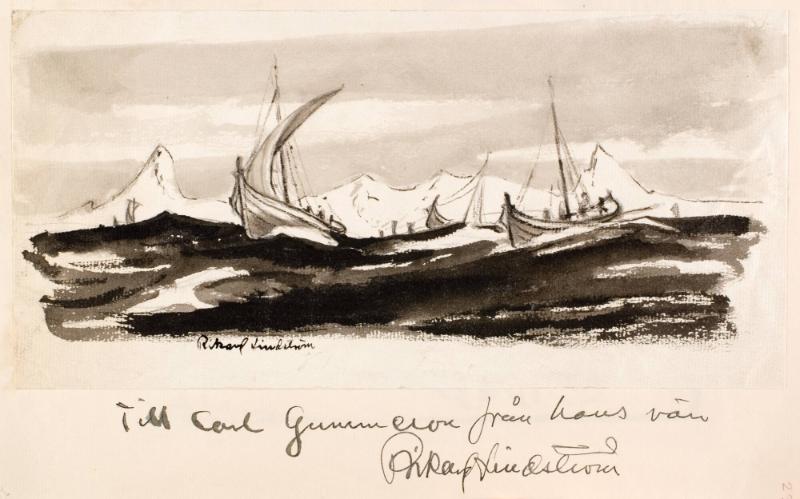 Rikard Lindström
Till Carl Gummeson från hans vän
Rikard Lindström